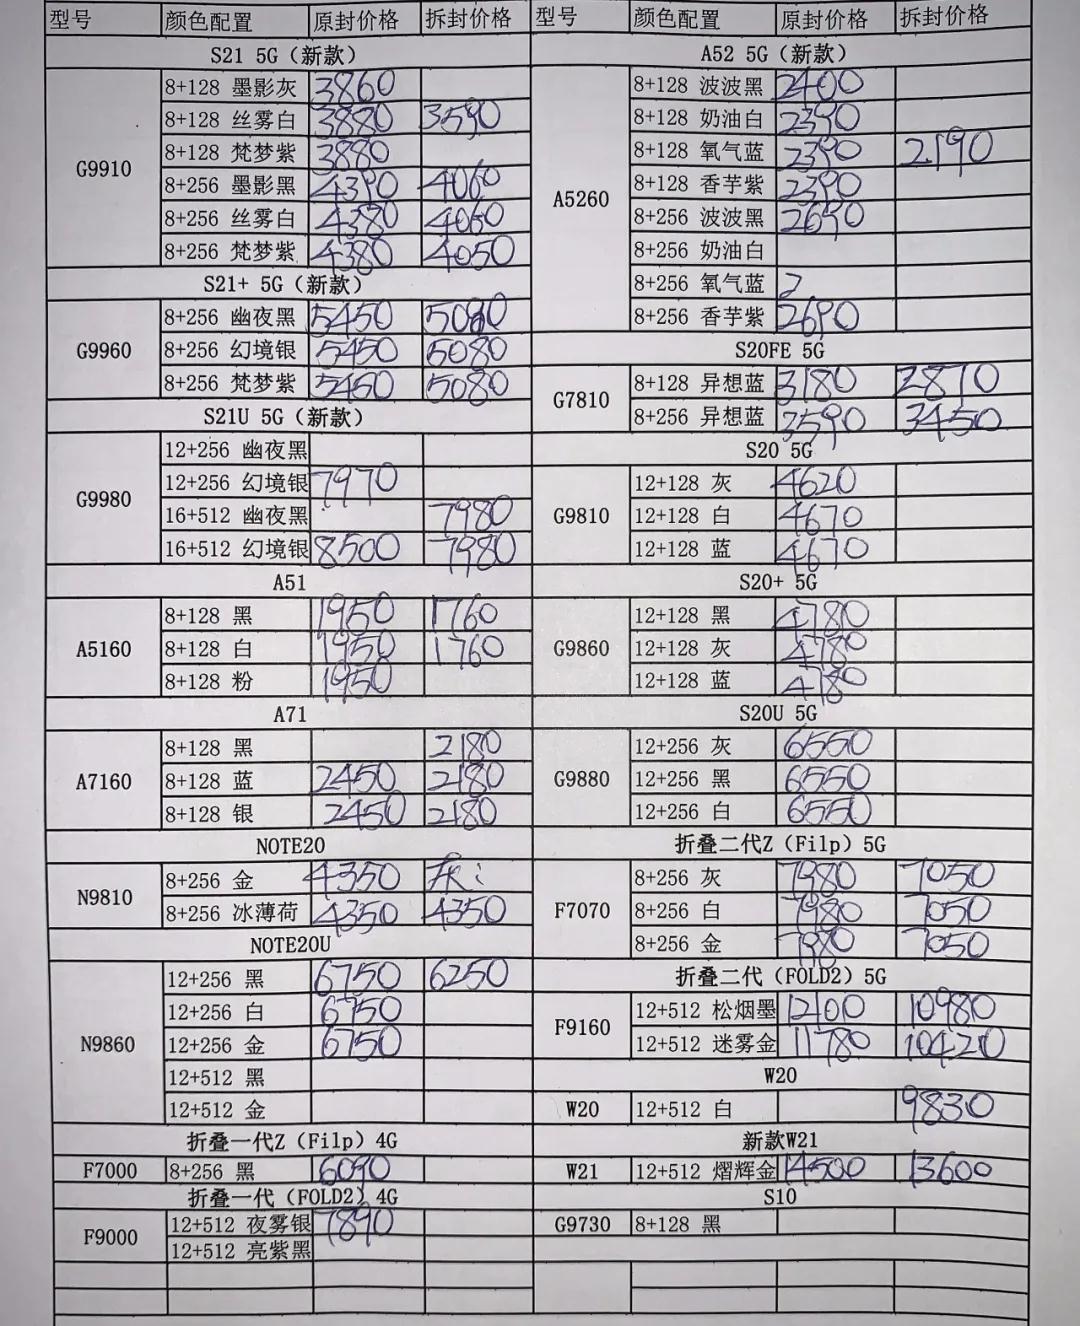 型号 颜色配置 原封价格 拆封价格
S21 5G（新款）
G9910
8+128 墨影灰 3860
8+128 丝雾白 3880 3590
8+128 梵梦紫 3880
8+256 墨影黑 4390 4060
8+256 丝雾白 4380 4060
8+256 梵梦紫 4380 4050
S21+ 5G（新款）
G9960
8+256 幽夜黑 5450 5080
8+256 幻境银 5450 5080
8+256 梵梦紫 5460 5080
S21U 5G（新款）
G9980
12+256 幽夜黑
12+256 幻境银 7970
16+512 幽夜黑 7980
16+512 幻境银 8500 7980
A51
A5160
8+128 黑 1950 1760
8+128 白 1950 1760
8+128 粉 1950
A71
A7160
8+128 黑 2180
8+128 蓝 2450 2180
8+128 银 2450 2180
NOTE20
N9810
8+256 金 4350
8+256 冰薄荷 4350 4350
NOTE20U
N9860
12+256 黑 6750 6250
12+256 白 6750
12+256 金 6750
12+512 黑
12+512 金
折叠一代Z（Filp）4G
F7000 8+256 黑 6090
折叠一代（FOLD2）4G
F9000
12+512 夜雾银 7890
12+512 亮紫黑
型号 颜色配置 原封价格 拆封价格
A52 5G（新款）
A5260
8+128 波波黑 2400
8+128 奶油白 2390
8+128 氧气蓝 2390 2190
8+128 香芋紫 2390
8+256 波波黑 2690
8+256 奶油白
8+256 氧气蓝 2
8+256 香芋紫 2690
S20FE 5G
G7810
8+128 异想蓝 3180 2870
8+256 异想蓝 3590 3450
S20 5G
G9810
12+128 灰 4620
12+128 白 4670
12+128 蓝 4670
S20+ 5G
G9860
12+128 黑 4780
12+128 灰 4780
12+128 蓝 4780
S20U 5G
G9880
12+256 灰 6550
12+256 黑 6550
12+256 白 6550
折叠二代Z（Filp）5G
F7070
8+256 灰 7980 7050
8+256 白 7980 7050
8+256 金 7980 7050
折叠二代（FOLD2）5G
F9160
12+512 松烟墨 12100 10980
12+512 迷雾金 11780 10420
W20
W20 12+512 白 9830
新款W21
W21 12+512 熠辉金 14500 13600
S10
G9730 8+128 黑